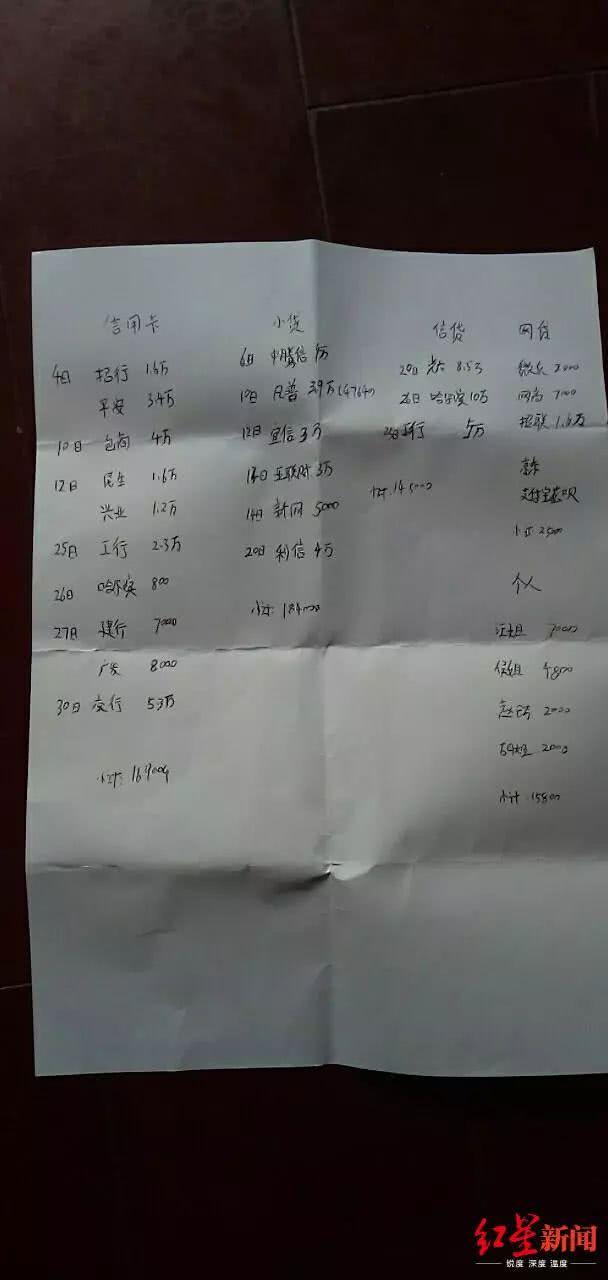 信用卡
4日 招行 1.6万
平安 3.4万
10日 包商 4万
12日 民生 1.6万
兴业 1.2万
25日 工行 2.3万
26日 哈尔滨 800
27日 建行 7000
广发 8000
30日 交行 5.3万
小计:
小贷
6日 中腾信
10日 凡普 3.9万 (4764)
12日 宜信 3万
14日 互联财 3万
14日 新网 5000
20日 利信 4万
小计: 184000
信贷
20日 8.5万
26日 哈尔滨 10万
工行 5万
小计
网贷
微众
网商 7000
招联 1.6万
京东
支付宝花呗
小计
个人
汪姐 7000
侯姐 4800
2000
胡姐 2000
小计 15800
红星新闻
锐度 深度 温度